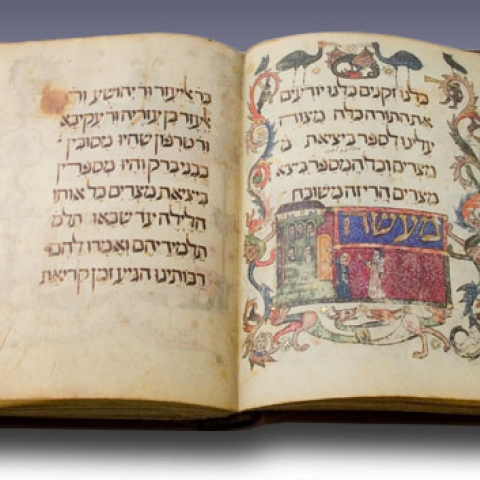 כלנו זקנים כלנו יודעים
את התורה כלה מצוה
עלינו לספר ביציאת
מצרים וכל המספר ביצא
מצרים הרי זה משובח
מעשה
בר אליעזר ור יהושע ור
אלעזר בן עזריה ור עקיבא
ור טרפון שהיו מסובין
בבני ברק והיו מספרין
ביציאת מצרים כל אותו
הלילה עד שבאו תלמ
תלמידיהם ואמרו להם
רבותינו הגיע זמן קריאת